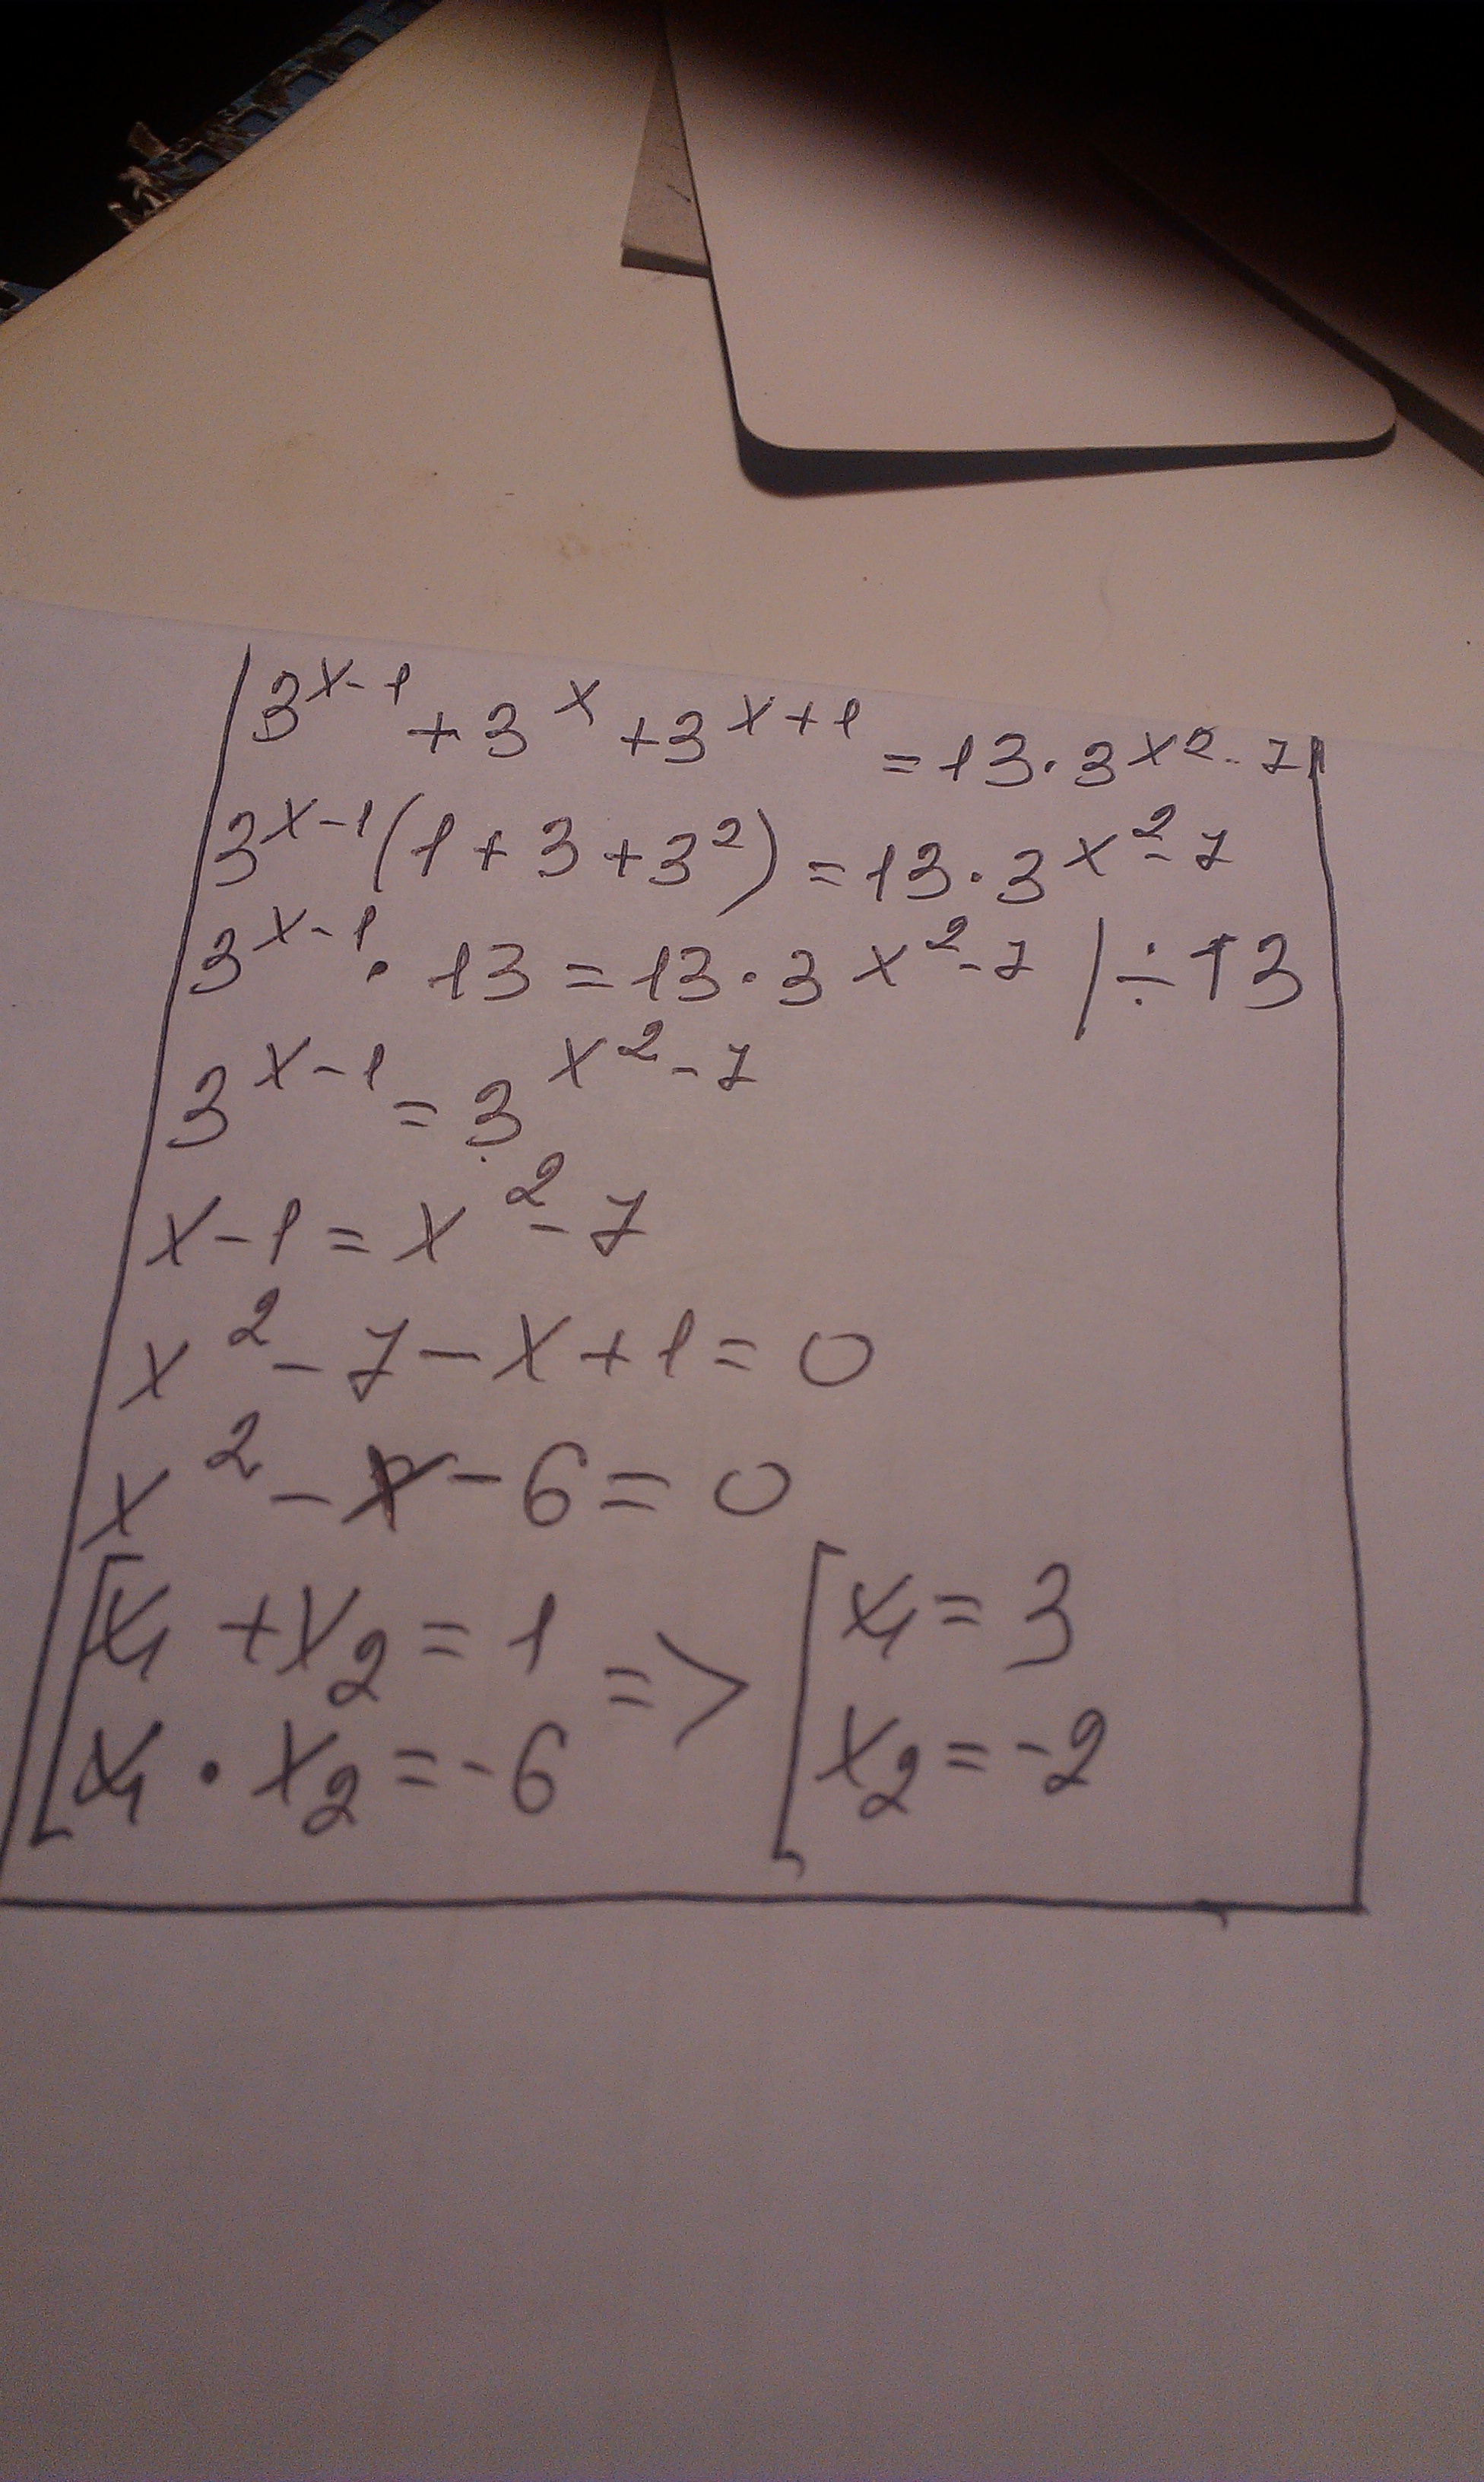 3^{x-1} + 3^{x} + 3^{x+1} = 13 · 3^{x^2-7}
3^{x-1}(1 + 3 + 3^2) = 13 · 3^{x^2-7}
3^{x-1} · 13 = 13 · 3^{x^2-7} | ÷ 13
3^{x-1} = 3^{x^2-7}
x - 1 = x^2 - 7
x^2 - 7 - x + 1 = 0
x^2 - x - 6 = 0
[x_1 + x_2 = 1 => [x_1 = 3
x_1 · x_2 = -6 x_2 = -2